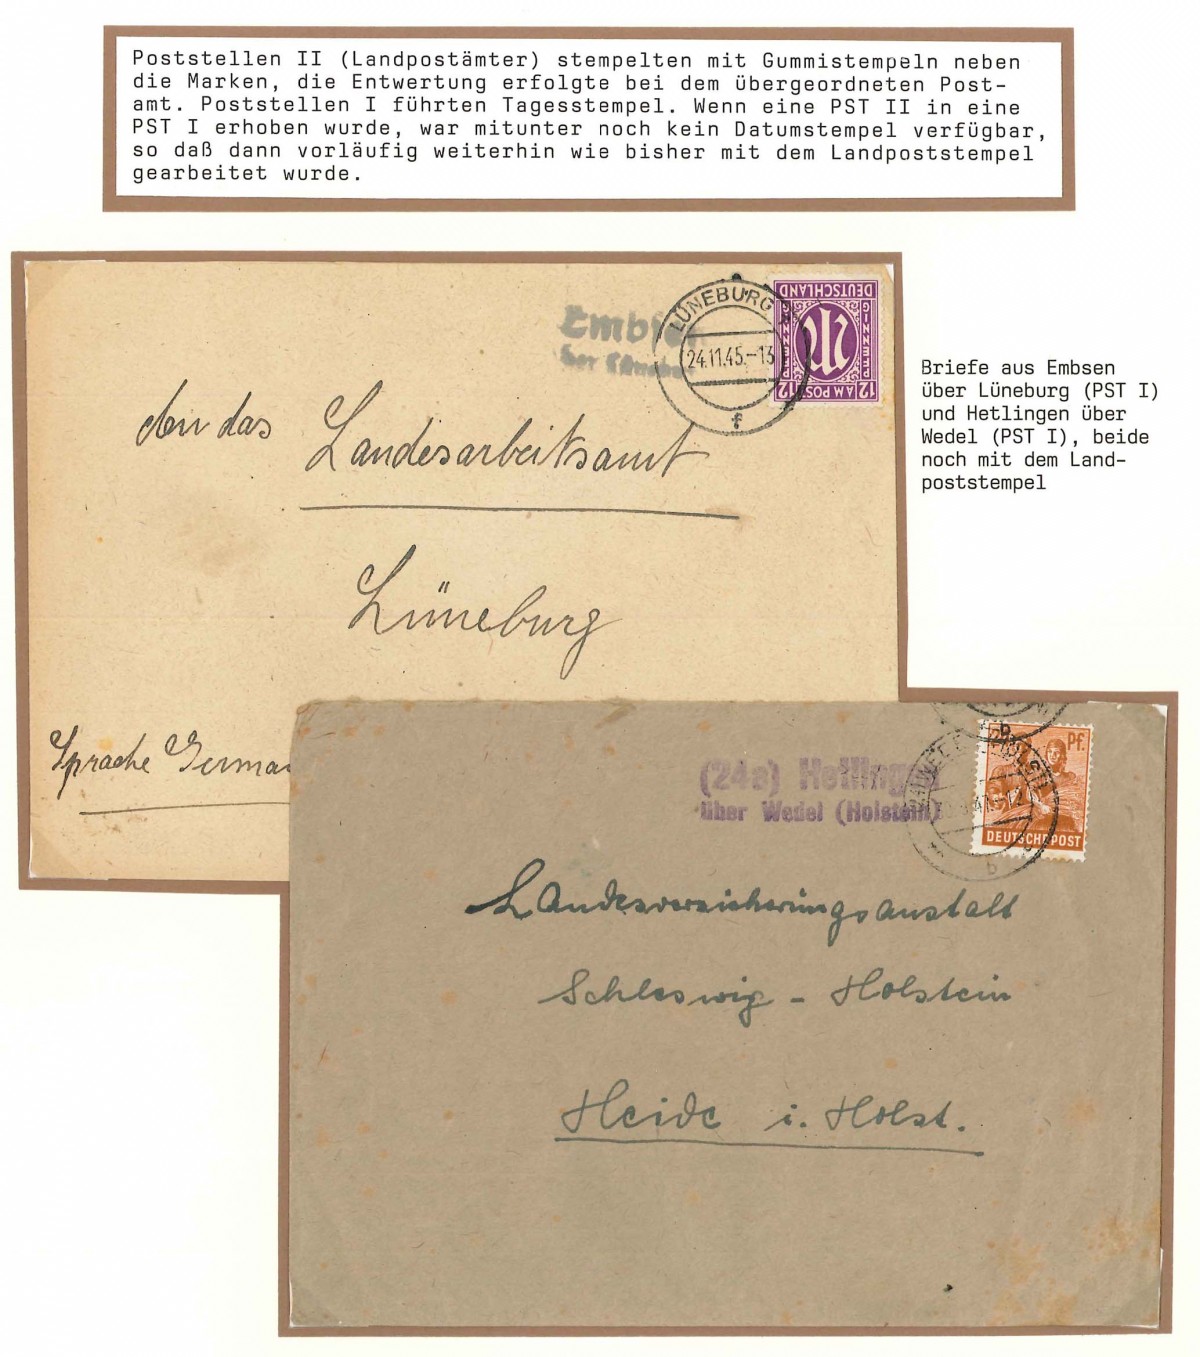 Poststellen II (Landpostämter) stempelten mit Gummistempeln neben
die Marken, die Entwertung erfolgte bei dem übergeordneten Post-
amt. Poststellen I führten Tagesstempel. Wenn eine PST II in eine
PST I erhoben wurde, war mitunter noch kein Datumstempel verfügbar,
so daß dann vorläufig weiterhin wie bisher mit dem Landpoststempel
gearbeitet wurde.
LÜNEBURG
24.11.45.-13
f
DEUTSCHLAND
PFENNIG
PFENNIG
12 AM POST 12
An das Landesarbeitsamt
Lüneburg
Sprache German
Briefe aus Embsen
über Lüneburg (PST I)
und Hetlingen über
Wedel (PST I), beide
noch mit dem Land-
poststempel
(24a) Hetlingen
über Wedel (Holstein)
b
Pf.
DEUTSCHE POST
b
Landesversicherungsanstalt
Schleswig - Holstein
Heide i. Holst.